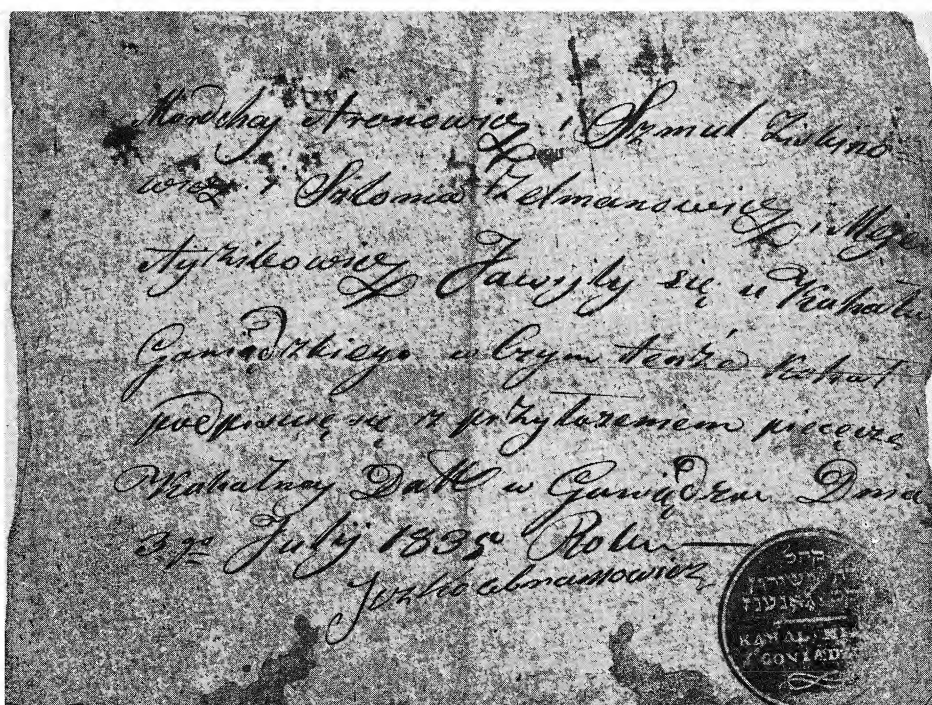 Mordchaj Aronowicz i Szmul Ziskino-
wicz i Szloma Zelmanowicz i
Jawiyly się u Kahału
Goniądzkiego w Czym tenże Kahał
podpisuię się z przyłożeniem pieczęcze
Kahalney Datt w Goniądzu Dnia
3go Julij 1835 Roku
Joszko Abramowicz
קהל
KAHAL
GONIADZ